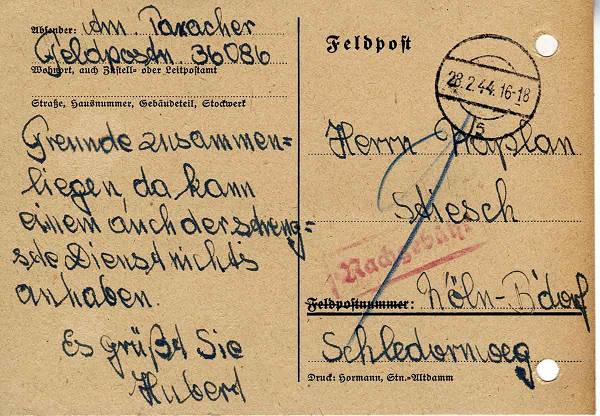 Absender: Am. Taxacher
Feldpostn. 36086
Wohnort, auch Zustell- oder Leitpostamt
Straße, Hausnummer, Gebäudeteil, Stockwerk
Freunde zusammen=
liegen, da kann
einem auch der streng=
ste Dienst nichts
anhaben.
Es grüßt Sie
Hubert
Feldpost
28.2.44.16-18
Herrn Kaplan
Stiesch
Nachgebühr
Feldpostnummer: Köln-B'dorf
Druck: Hormann, Stn.-Altdamm